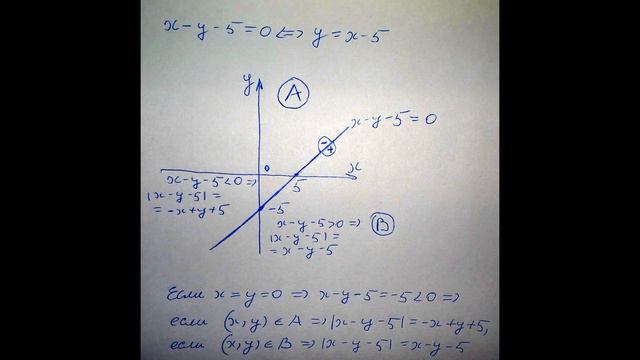 x-y-5=0 <=> y=x-5
y
A
x-y-5=0
-
+
o
x
x-y-5<0 =>
5
|x-y-5|=
=-x+y+5
-5
x-y-5>0 =>
B
|x-y-5|=
=x-y-5
Если x=y=0 => x-y-5=-5<0 =>
если (x,y)∈A => |x-y-5|=-x+y+5,
если (x,y)∈B => |x-y-5|=x-y-5